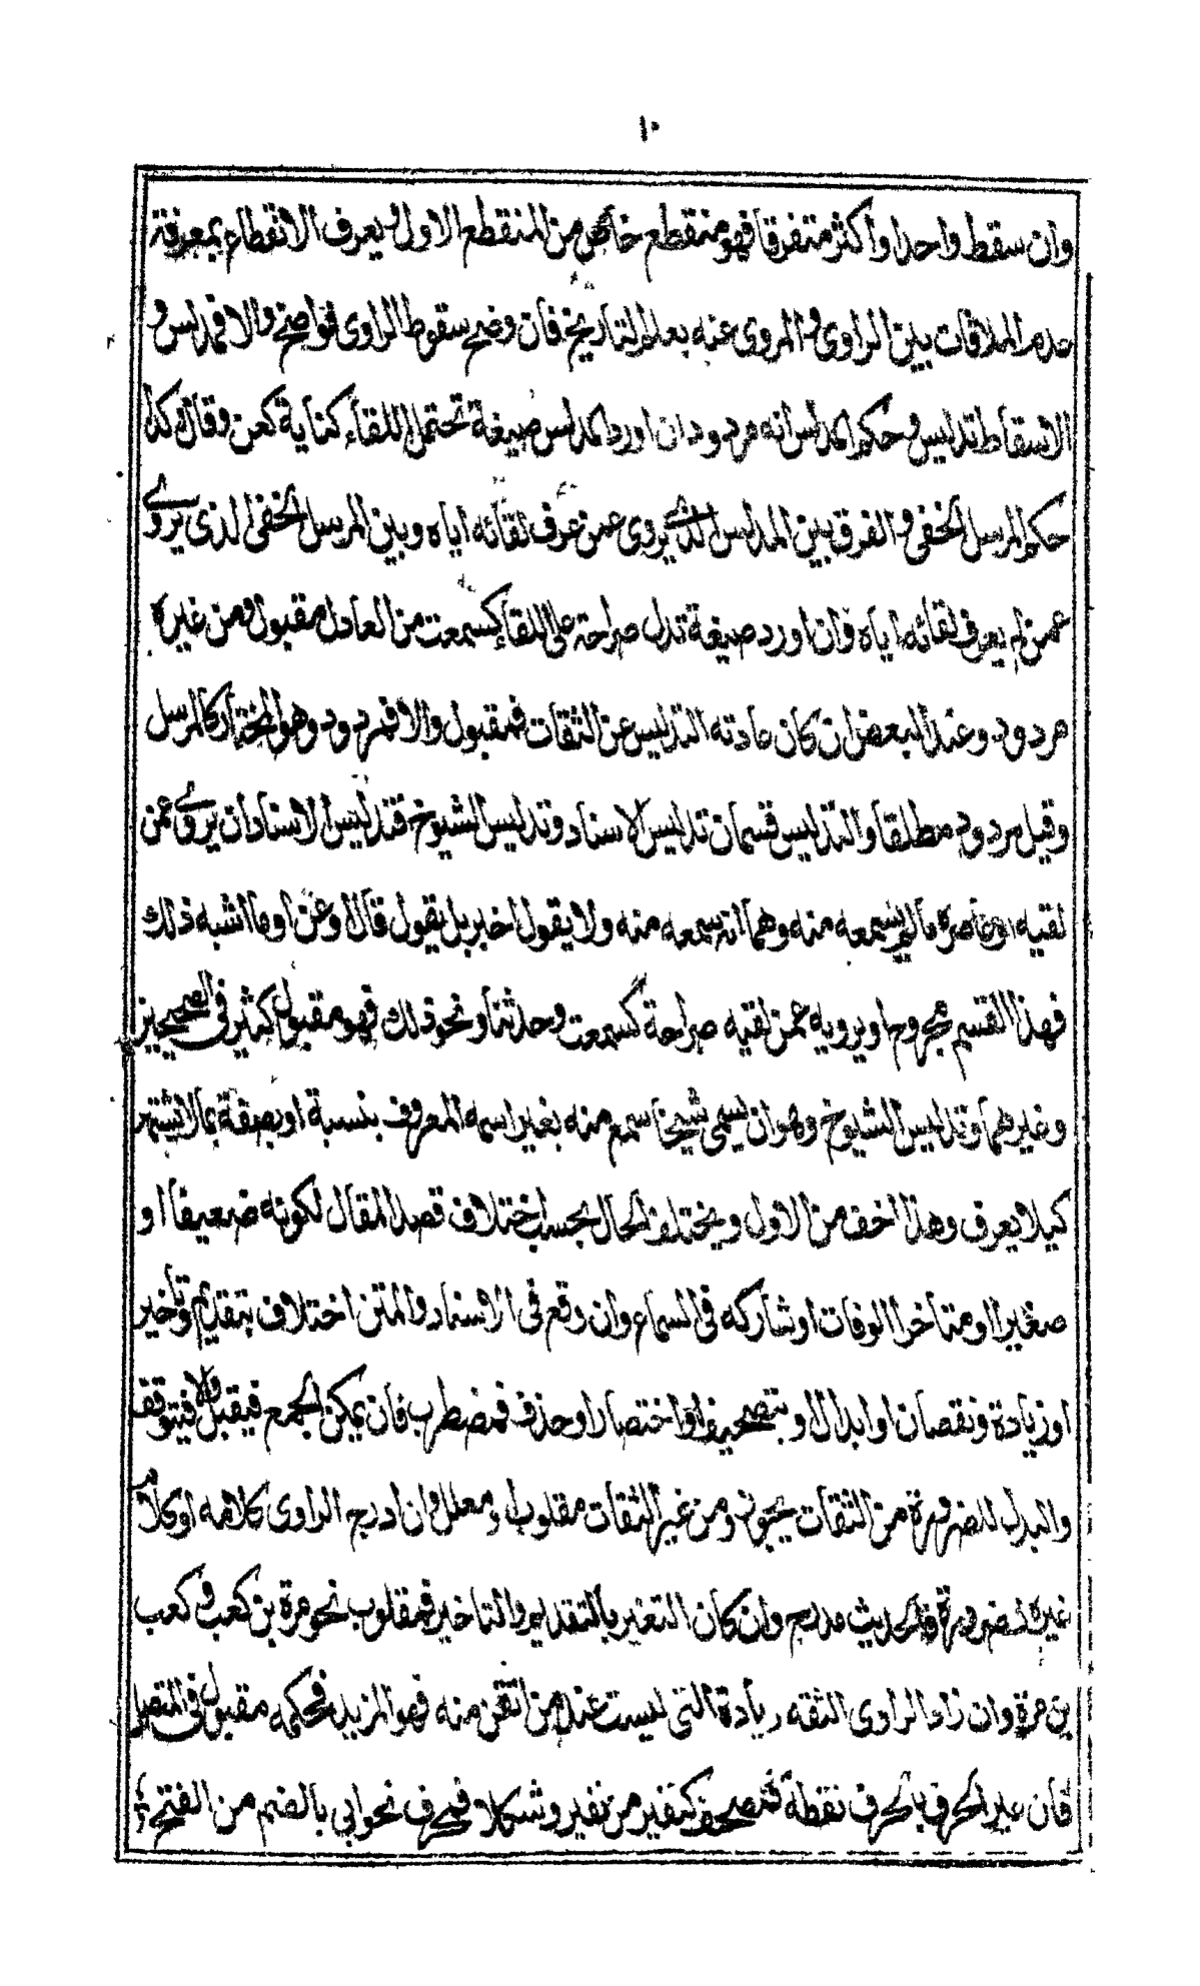 ١٠
وان سقط واحدا واكثر متفرقا فهو منقطع خاص من المنقطع الاول ويعرف الانقطاع بمعرفة
عدم الملاقات بين الراوى والمروى عنه بعلم التاريخ فان وضح سقوط الراوى فواضح والا فمدلس و
الاسقاط تدليس وحكم المدلس انه مردود ان اورد المدلس صيغة تحتمل اللقاء كناية كعن وقال وكذا
حكم المرسل الخفى والفرق بين المدلس الذى يروى عمن عرف لقائه اياه وبين المرسل الخفى الذى يروى
عمن لم يعرف لقائه اياه وان اورد صيغة تدل صراحة على اللقاء كسمعت من العادل مقبول ومن غيره
مردود وعند البعض ان كان عادته التدليس عن الثقات فمقبول والا فمردود وهو المختار كالمرسل
وقيل مردود مطلقا والتدليس قسمان تدليس الاسناد وتدليس الشيوخ فتدليس الاسناد ان يروى عمن
لقيه او عاصره ما لم يسمعه منه وهما انه سمعه منه ولا يقول اخبر بل يقول قال وعن او ما اشبه ذلك
فهذا القسم مجروح او يرويه عمن لقيه صراحة كسمعت وحدثنا ونحو ذلك فهو مقبول كثير فى الصحيحين
وغيرهما وتدليس الشيوخ وهو ان يسمى شيخا سمع منه بغير اسمه المعروف بنسبة او بصفة بما لا تشتهر
كيلا يعرف وهذا اخف من الاول ويختلف الحال بحسب اختلاف قصد المقال لكونه ضعيفا او
صغيرا او متاخر الوفات او شاركه فى السماع وان وقع فى الاسناد والمتن اختلاف بتقديم وتاخير
او زيادة ونقصان او ابدال او بتصحيف او اختصار او حذف فمضطرب فان يمكن الجمع فيقبل والا فيتوقف
والبدل للضرورة من الثقات يجوز ومن غير الثقات مقلوب او معلل وان ادرج الراوى كلامه او كلام
غيره لضرورة فالحديث مدرج وان كان التغير بالتقديم والتاخير فمقلوب نحو مرة بن كعب وكعب
بن مرة وان زاد الراوى الثقه زيادة التى ليست عند من اتقن منه فهو المزيد فحكمه مقبول فى المتصل
فان غير الحرف بالحرف نقطة فتصحف كنفير من نفير وشكلا فمحرف نحو ابى بالضم من الفتح